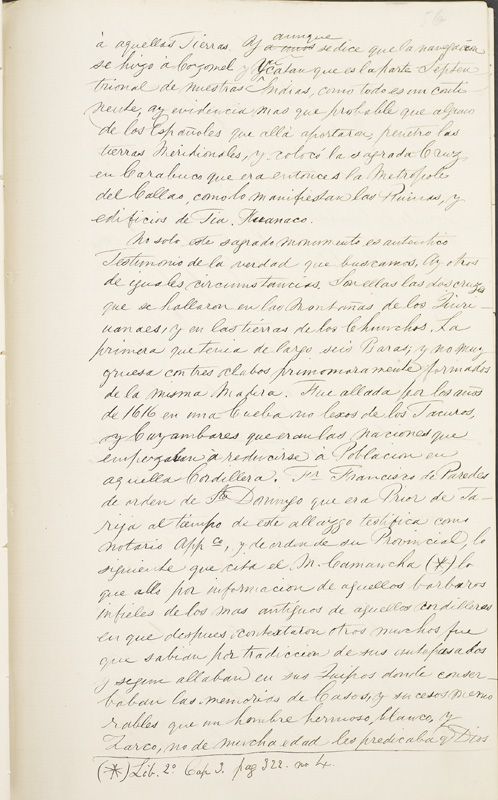 56
à aquellas Tierras. Y aunque se dice que la navegacion
se hizo à Cozomel y Yucatan que es la parte Septen
trional de nuestras Indias, como todo es un conti
nente, ay evidencia mas que probable que alguno
de los Españoles que allà aportaron, penetro las
tierras Meridionales, y colocó la sagrada Cruz
en Carabuco que era entonces la Metropole
del Callao, como lo manifiestan las Ruinas, y
edificios de Tia. Huanaco.
No solo este sagrado monumento es autentico
Testimonio de la verdad que buscamos, Ay otros
de yguales circumstancias. Son ellas las dos cruzes
que se hallaron en las Montañas de los Chiri-
uanaes, y en las tierras de los Chunchos. La
primera que tenia de largo seis Baras, y no muy
gruesa con tres clabos primomoramente formados
de la misma Madera. Fue allada por los años
de 1616 en una Cueba no lexos de los Tacuros,
y Cayambares que eran las naciones que
empezaban à reducirse à Poblacion en
aquella Cordillera. Fr. Francisco de Paredes
de orden de Sto Domingo que era Prior de Ta-
rija al tiempo de este allazgo testifica como
notario Appco, y de orden de su Provincial, lo
siguiente que cita el M. Camancha (*) lo
que allo por informacion de aquellos barbaros
infieles de los mas antiguos de aquellos cordilleras
en que despues contextaron otros muchos fue
que sabian por tradiccion de sus antepasados
y segun allaban en sus Quipos donde conser-
baban las memorias de Casos, y sucesos memo
rables que un hombre hermoso, blanco, y
Zarco, no de mucha edad les predicaba q Dios
(*) Lib. 2º Cap 3. pag 322. no 4.